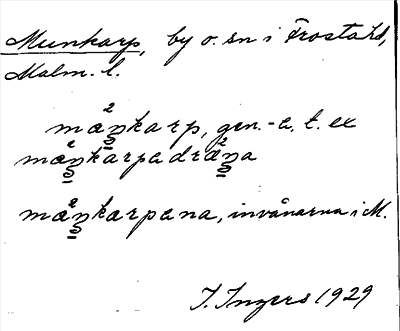 Munkarp, by o. sn i Frosta hd,
Malm. l.
mæŋ̠²karp, gen. -a, t. ex
mæŋ̠²karpadræŋ̠²a
mæŋ̠²karpana, invånarna i M.
I. Ingers 1929